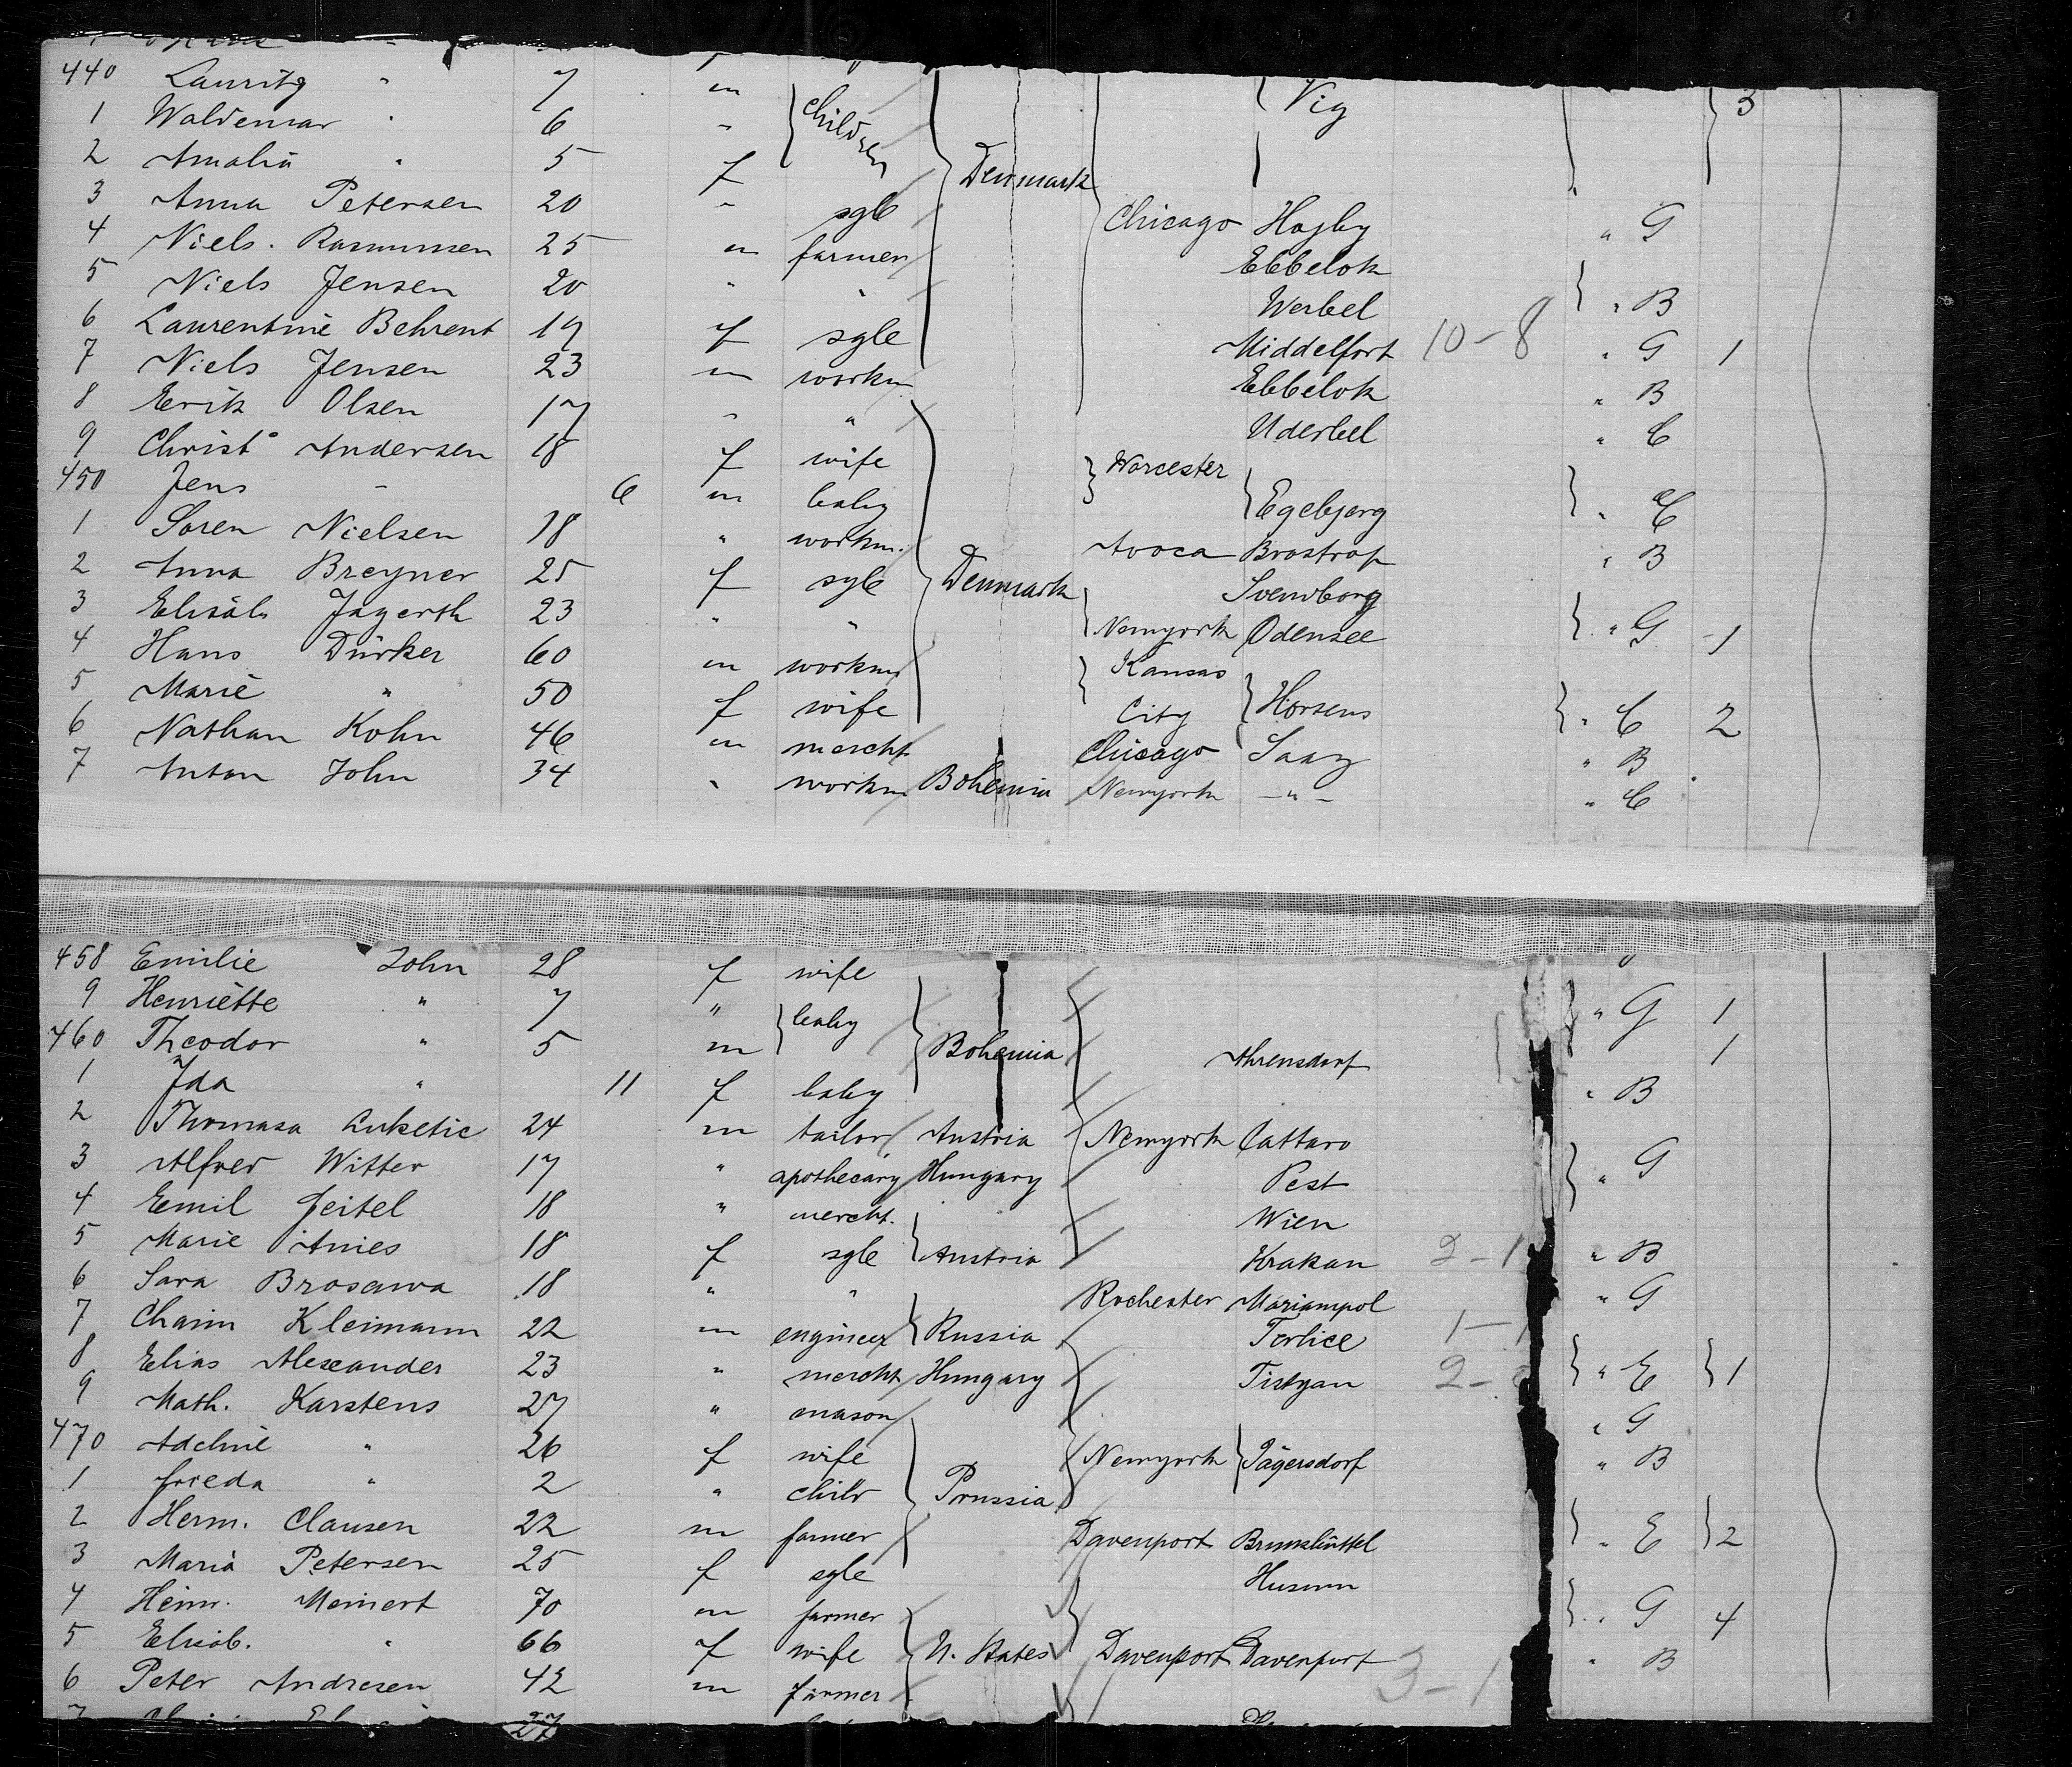 440 Lauritz " 7 m Vig 3
1 Waldemar " 6 " children
2 Amalia " 5 f Denmark
3 Anna Petersen 20 " sgle Chicago Hojby " G
4 Niels Rasmussen 25 m farmer Ebbelok
5 Niels Jensen 20 " " Werbel " B
6 Laurentine Behrent 19 f sgle Middelfort 10-8 " G 1
7 Niels Jensen 23 m workm Ebbelok " B
8 Erik Olsen 17 " " Uderbel " C
9 Christ Andersen 18 f wife Worcester
450 Jens - 6 m baby Egebjerg " C
1 Soren Nielsen 18 " workm. Avoca Brostrop " B
2 Anna Breyner 25 f sgle Denmark Svendborg
3 Elisab. Jagerth 23 " " Newyork Odensee " G 1
4 Hans Dürker 60 m workm Kansas
5 Marie " 50 f wife City Horsens " C 2
6 Nathan Kohn 46 m mercht Chicago Saaz " B
7 Anton John 34 " workm Bohemia Newyork -"- " C
458 Emilie John 28 f wife
9 Henriette " 7 " baby " G 1
460 Theodor " 5 m Bohemia Ahrensdorf 1
1 Ida " 11 f baby " B
2 Thomasa Luketic 24 m tailor Austria Newyork Cattaro
3 Alfred Witter 17 " apothecary Hungary Pest " G
4 Emil Jeitel 18 " mercht. Wien
5 Marie Anies 18 f sgle Austria Krakau 2-1 " B
6 Sara Brosawa 18 " " Rochester Mariampol " G
7 Chaim Kleimann 22 m engineer Russia Torlice 1-1
8 Elias Alexander 23 " mercht Hungary Tistyan 2- " E 1
9 Math. Karstens 27 " mason " G
470 Adeline " 26 f wife Newyork Jägersdorf " B
1 Frieda " 2 " child Prussia
2 Herm. Clausen 22 m farmer Davenport Brunsbüttel " E 2
3 Maria Petersen 25 f sgle Husum
4 Heinr. Meinert 70 m farmer " G 4
5 Elisab. " 66 f wife U. States Davenport Davenport " B
6 Peter Andresen 42 m farmer 3-1
27